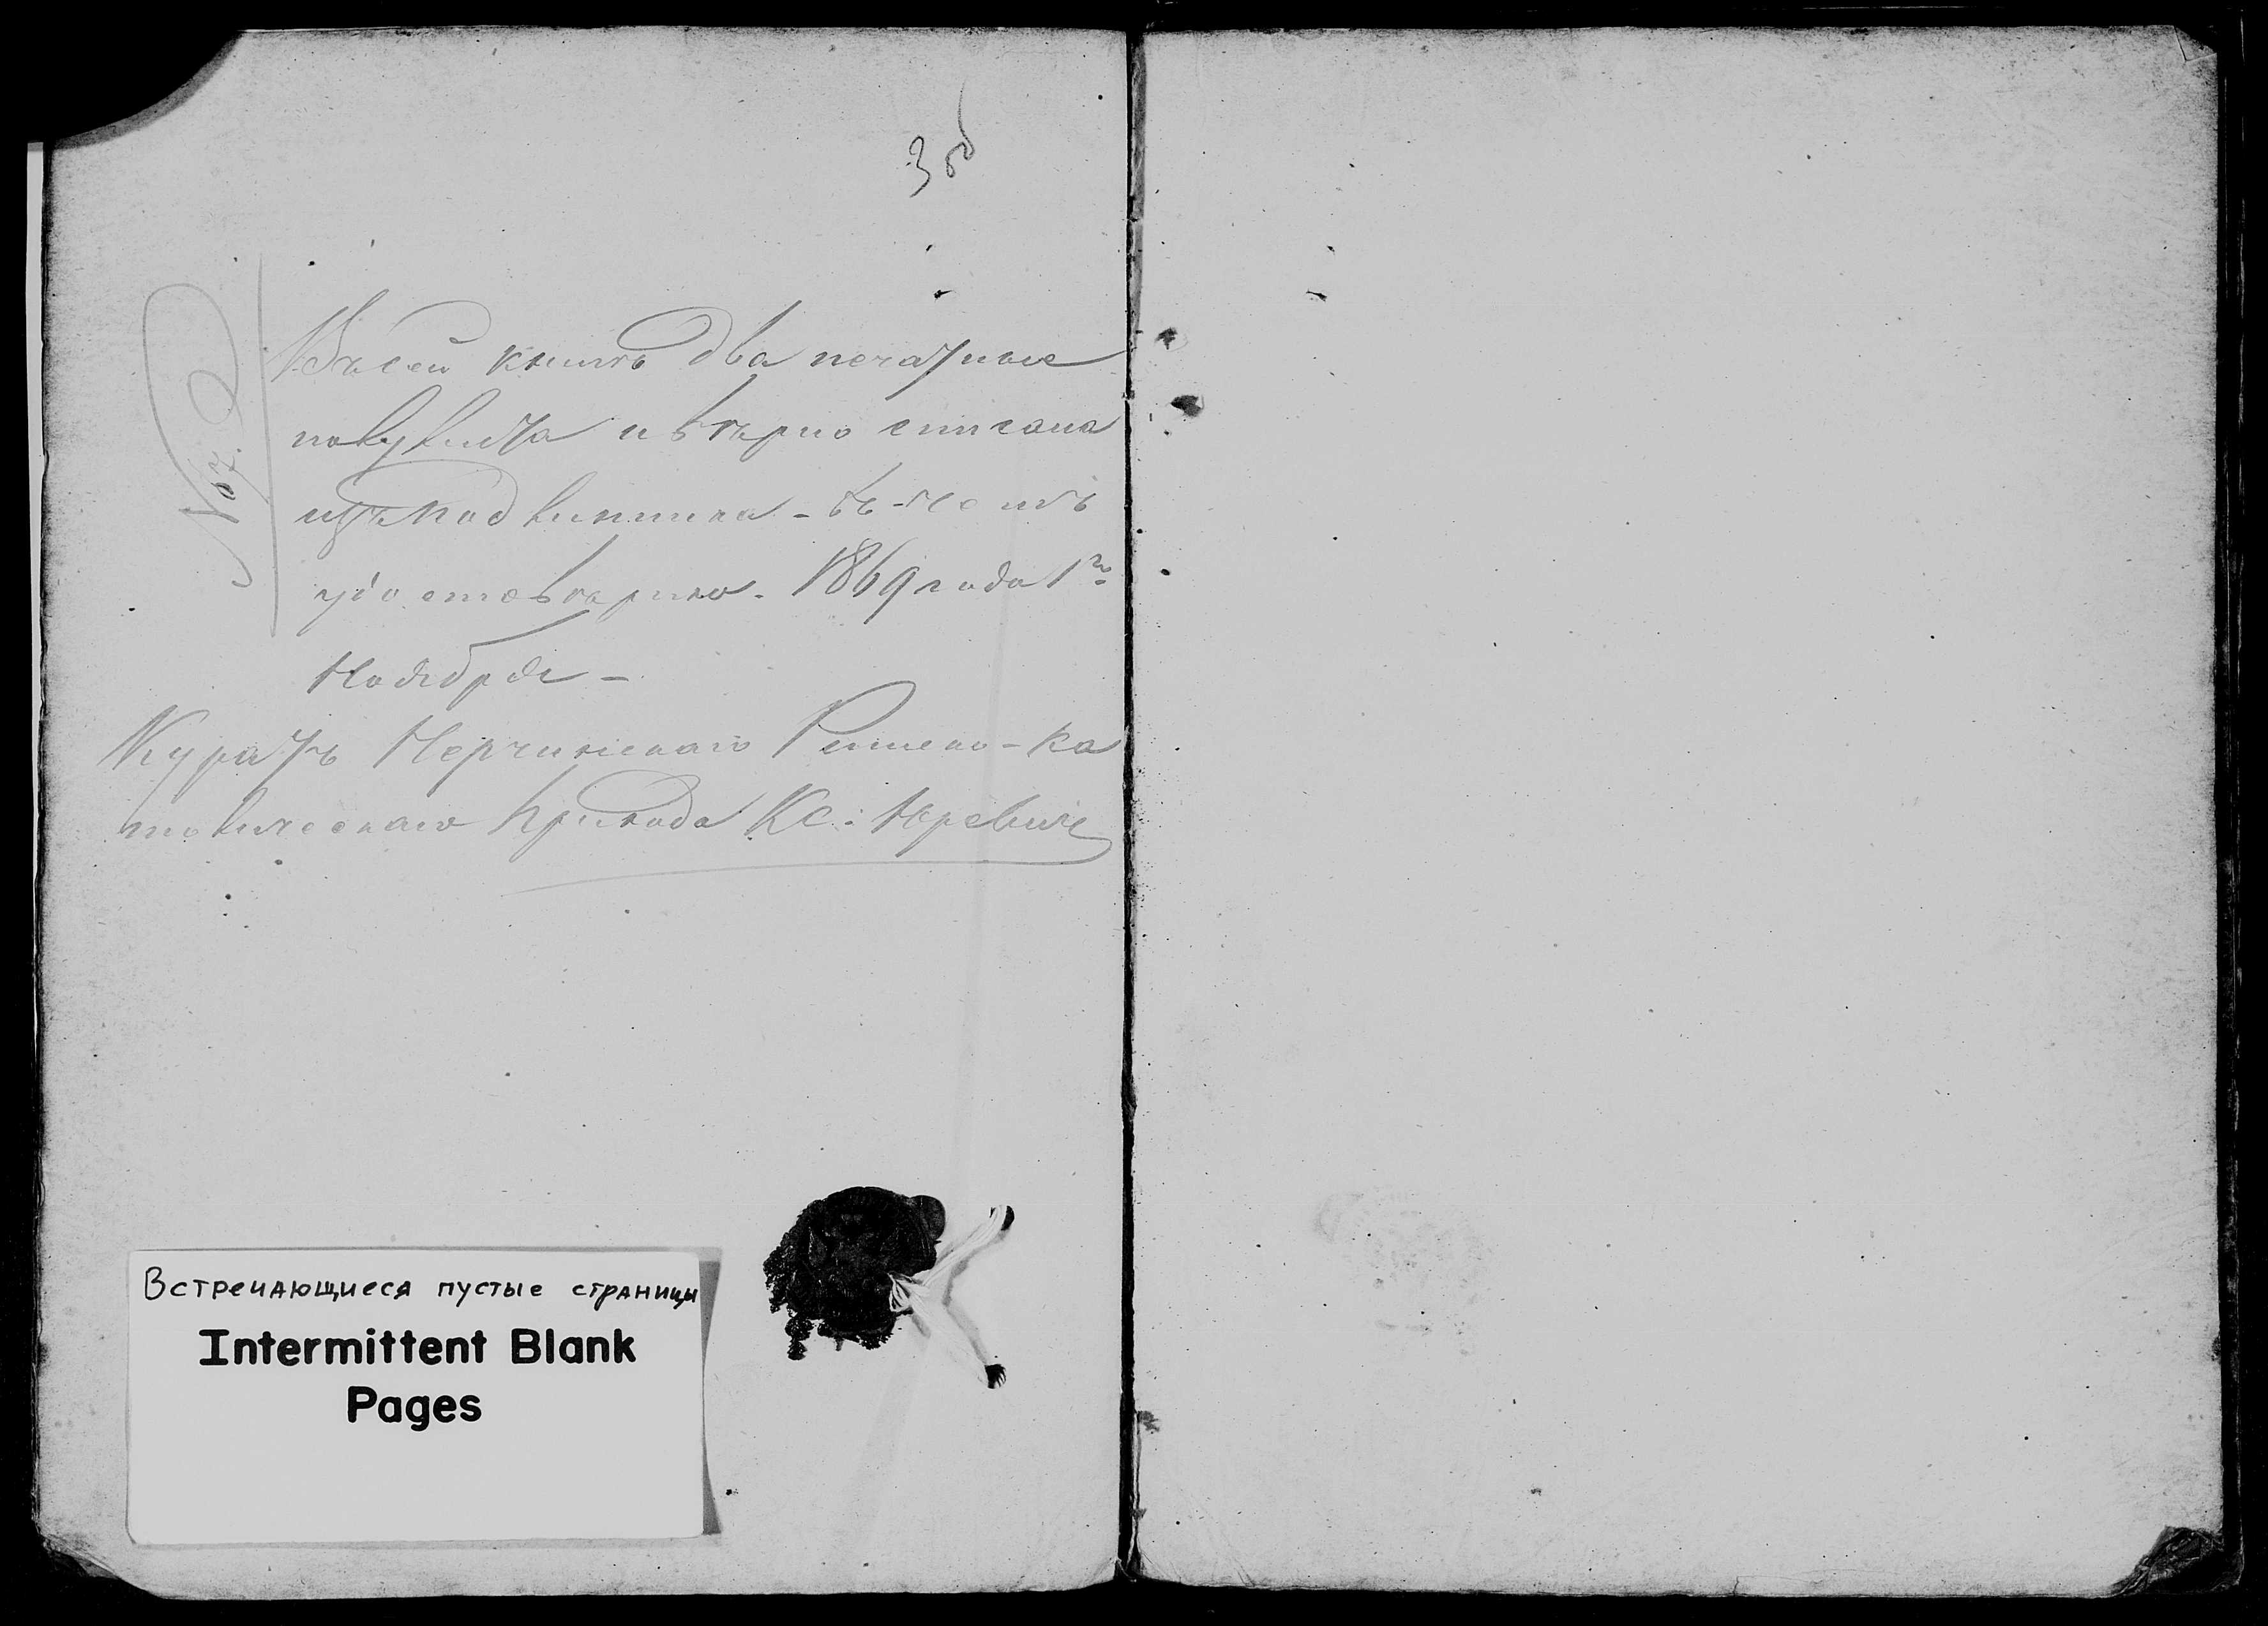 3 об
№ 67.
Въ сей книгѣ два печатные
полулиста и вѣрно списана
изъ подлинника - въ чемъ
удостовѣряю. 1869 года 1го
Ноября -
Куратъ Нерчинскаго Римско-ка
толическаго прихода Кс: Юревичъ
Встречающиеся пустые страницы
Intermittent Blank
Pages